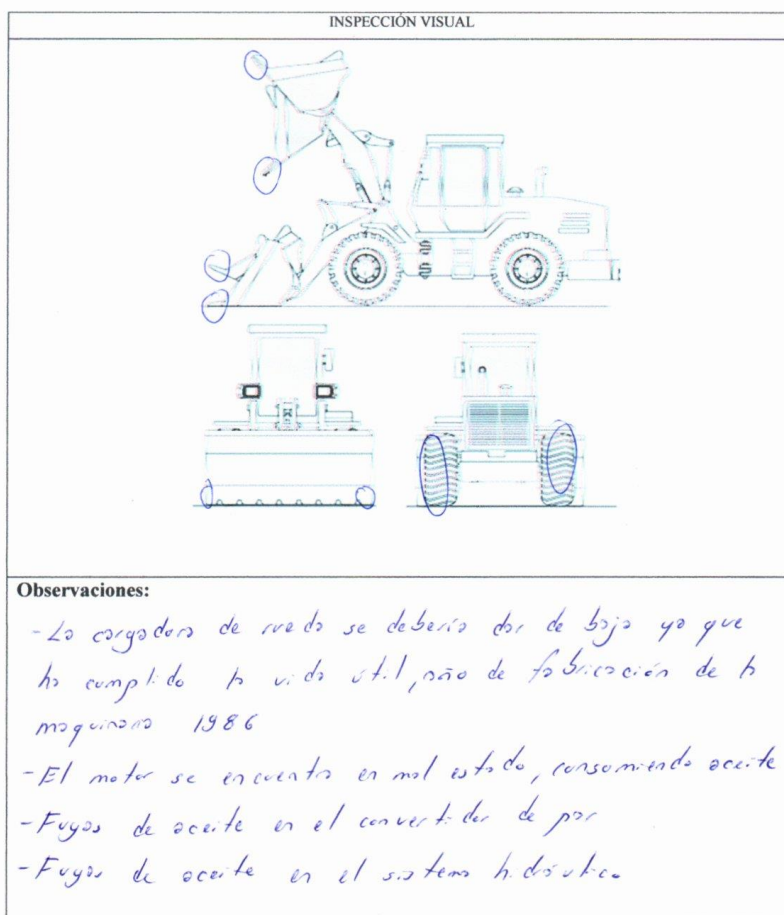 INSPECCIÓN VISUAL
Observaciones:
- La cargadora de rueda se debería dar de baja ya que
ha cumplido la vida útil, año de fabricación de la
maquinaria 1986
- El motor se encuentra en mal estado, consumiendo aceite
- Fugas de aceite en el convertidor de par
- Fugas de aceite en el sistema hidráulico